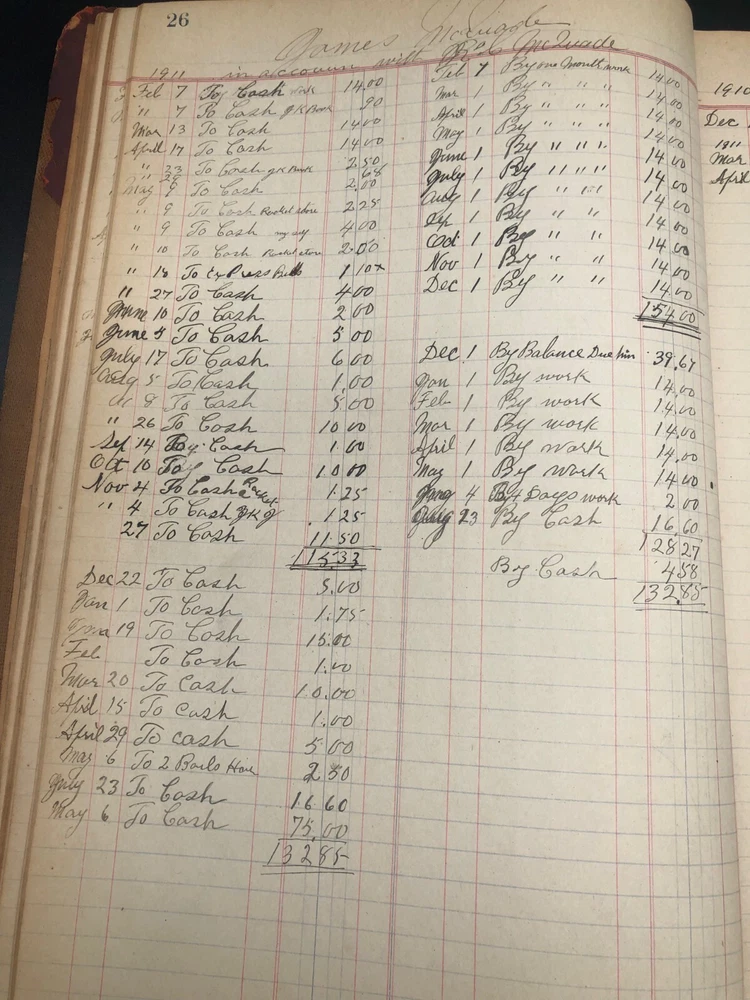 26
James McQuade
in account with McQuade
1911
Feb 7 To Cash 14.00
" 7 To Cash .90
Mar 13 To Cash 14.00
April 17 To Cash 14.00
" 23 To Cash 2.50
.68
May 9 To Cash 2.00
" 9 To Cash Racket store 2.25
" 9 To Cash my self 4.00
" 10 To Cash Racket store 2.00
" 18 To Express 1.10
" 27 To Cash 4.00
June 10 To Cash 2.00
June 5 To Cash 5.00
July 17 To Cash 6.00
Aug 5 To Cash 1.00
8 To Cash 5.00
" 26 To Cash 10.00
Sep 14 To Cash 1.00
Oct 10 To Cash 10.00
Nov 4 To Cash 1.25
" 4 To Cash 1.25
27 To Cash 11.50
115.33
Dec 22 To Cash 5.00
Jan 1 To Cash 1.75
19 To Cash 15.00
Feb To Cash 1.00
Mar 20 To Cash 10.00
April 15 To Cash 1.00
April 29 To Cash 5.00
May 6 To 2 2.50
July 23 To Cash 16.60
May 6 To Cash 75.00
132.85
Feb 7 By one Month work 14.00
Mar 1 By " " " 14.00
April 1 By " " " 14.00
May 1 By " " " 14.00
June 1 By " " " 14.00
July 1 By " " " 14.00
Aug 1 By " " " 14.00
Sep 1 By " " 14.00
Oct 1 By " " 14.00
Nov 1 By " " 14.00
Dec 1 By " " 14.00
154.00
Dec 1 By Balance Due him 39.67
Jan 1 By work 14.00
Feb 1 By work 14.00
Mar 1 By work 14.00
April 1 By work 14.00
May 1 By work 14.00
4 By 4 Days work 2.00
23 By Cash 16.60
128.27
By Cash 4.58
132.85
1910
Dec
1911
Mar
April